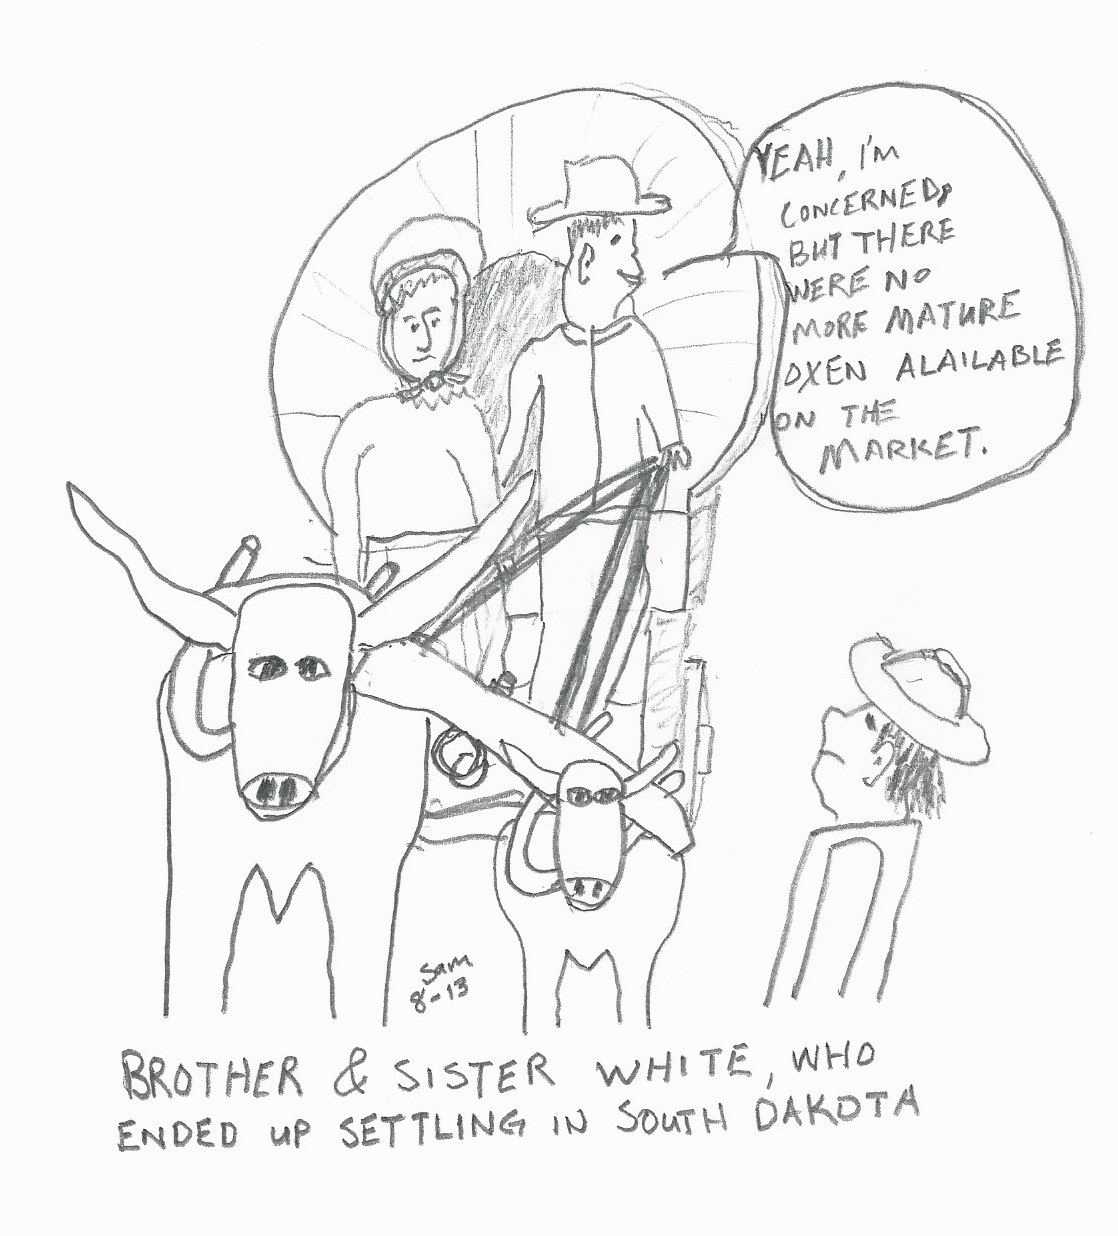 YEAH, I'M
CONCERNED,
BUT THERE
WERE NO
MORE MATURE
OXEN ALAILABLE
ON THE
MARKET.
Sam
8-13
BROTHER & SISTER WHITE, WHO
ENDED UP SETTLING IN SOUTH DAKOTA